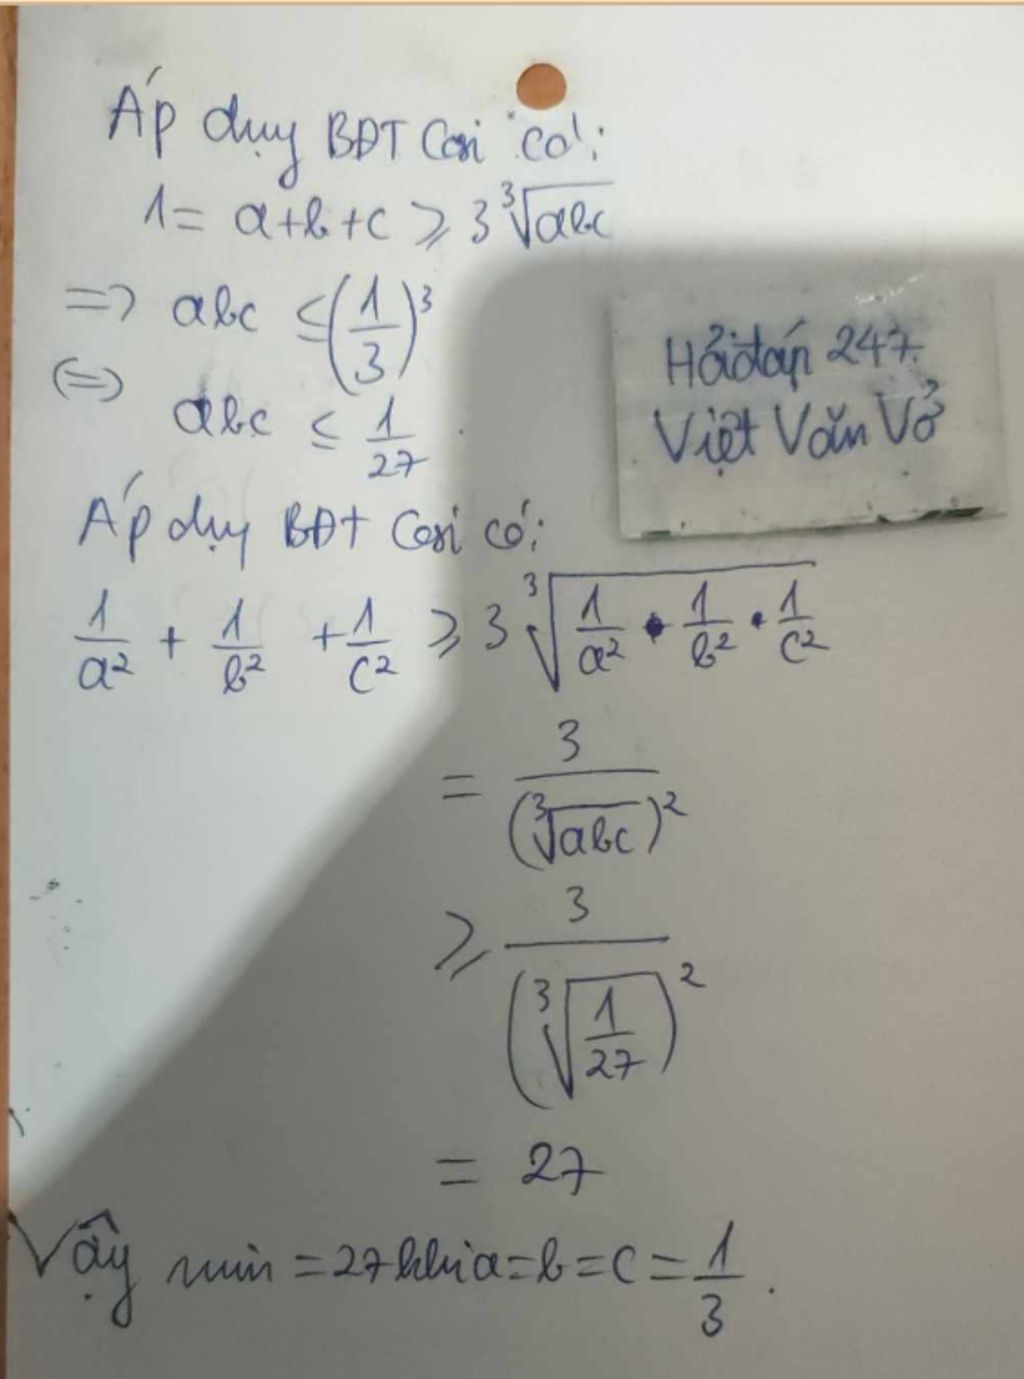 Áp dụng BĐT Cosi có:
1 = a+b+c ≥ 3∛abc
=> abc ≤ (1/3)³
(=) abc ≤ 1/27.
Hỏiđáp 247.
Việt Văn Vở
Áp dụng BĐT Cosi có:
1/a² + 1/b² + 1/c² ≥ 3∛(1/a² • 1/b² • 1/c²)
= 3/(∛abc)²
≥ 3/(∛(1/27))²
= 27
Vậy min = 27 khi a = b = c = 1/3.